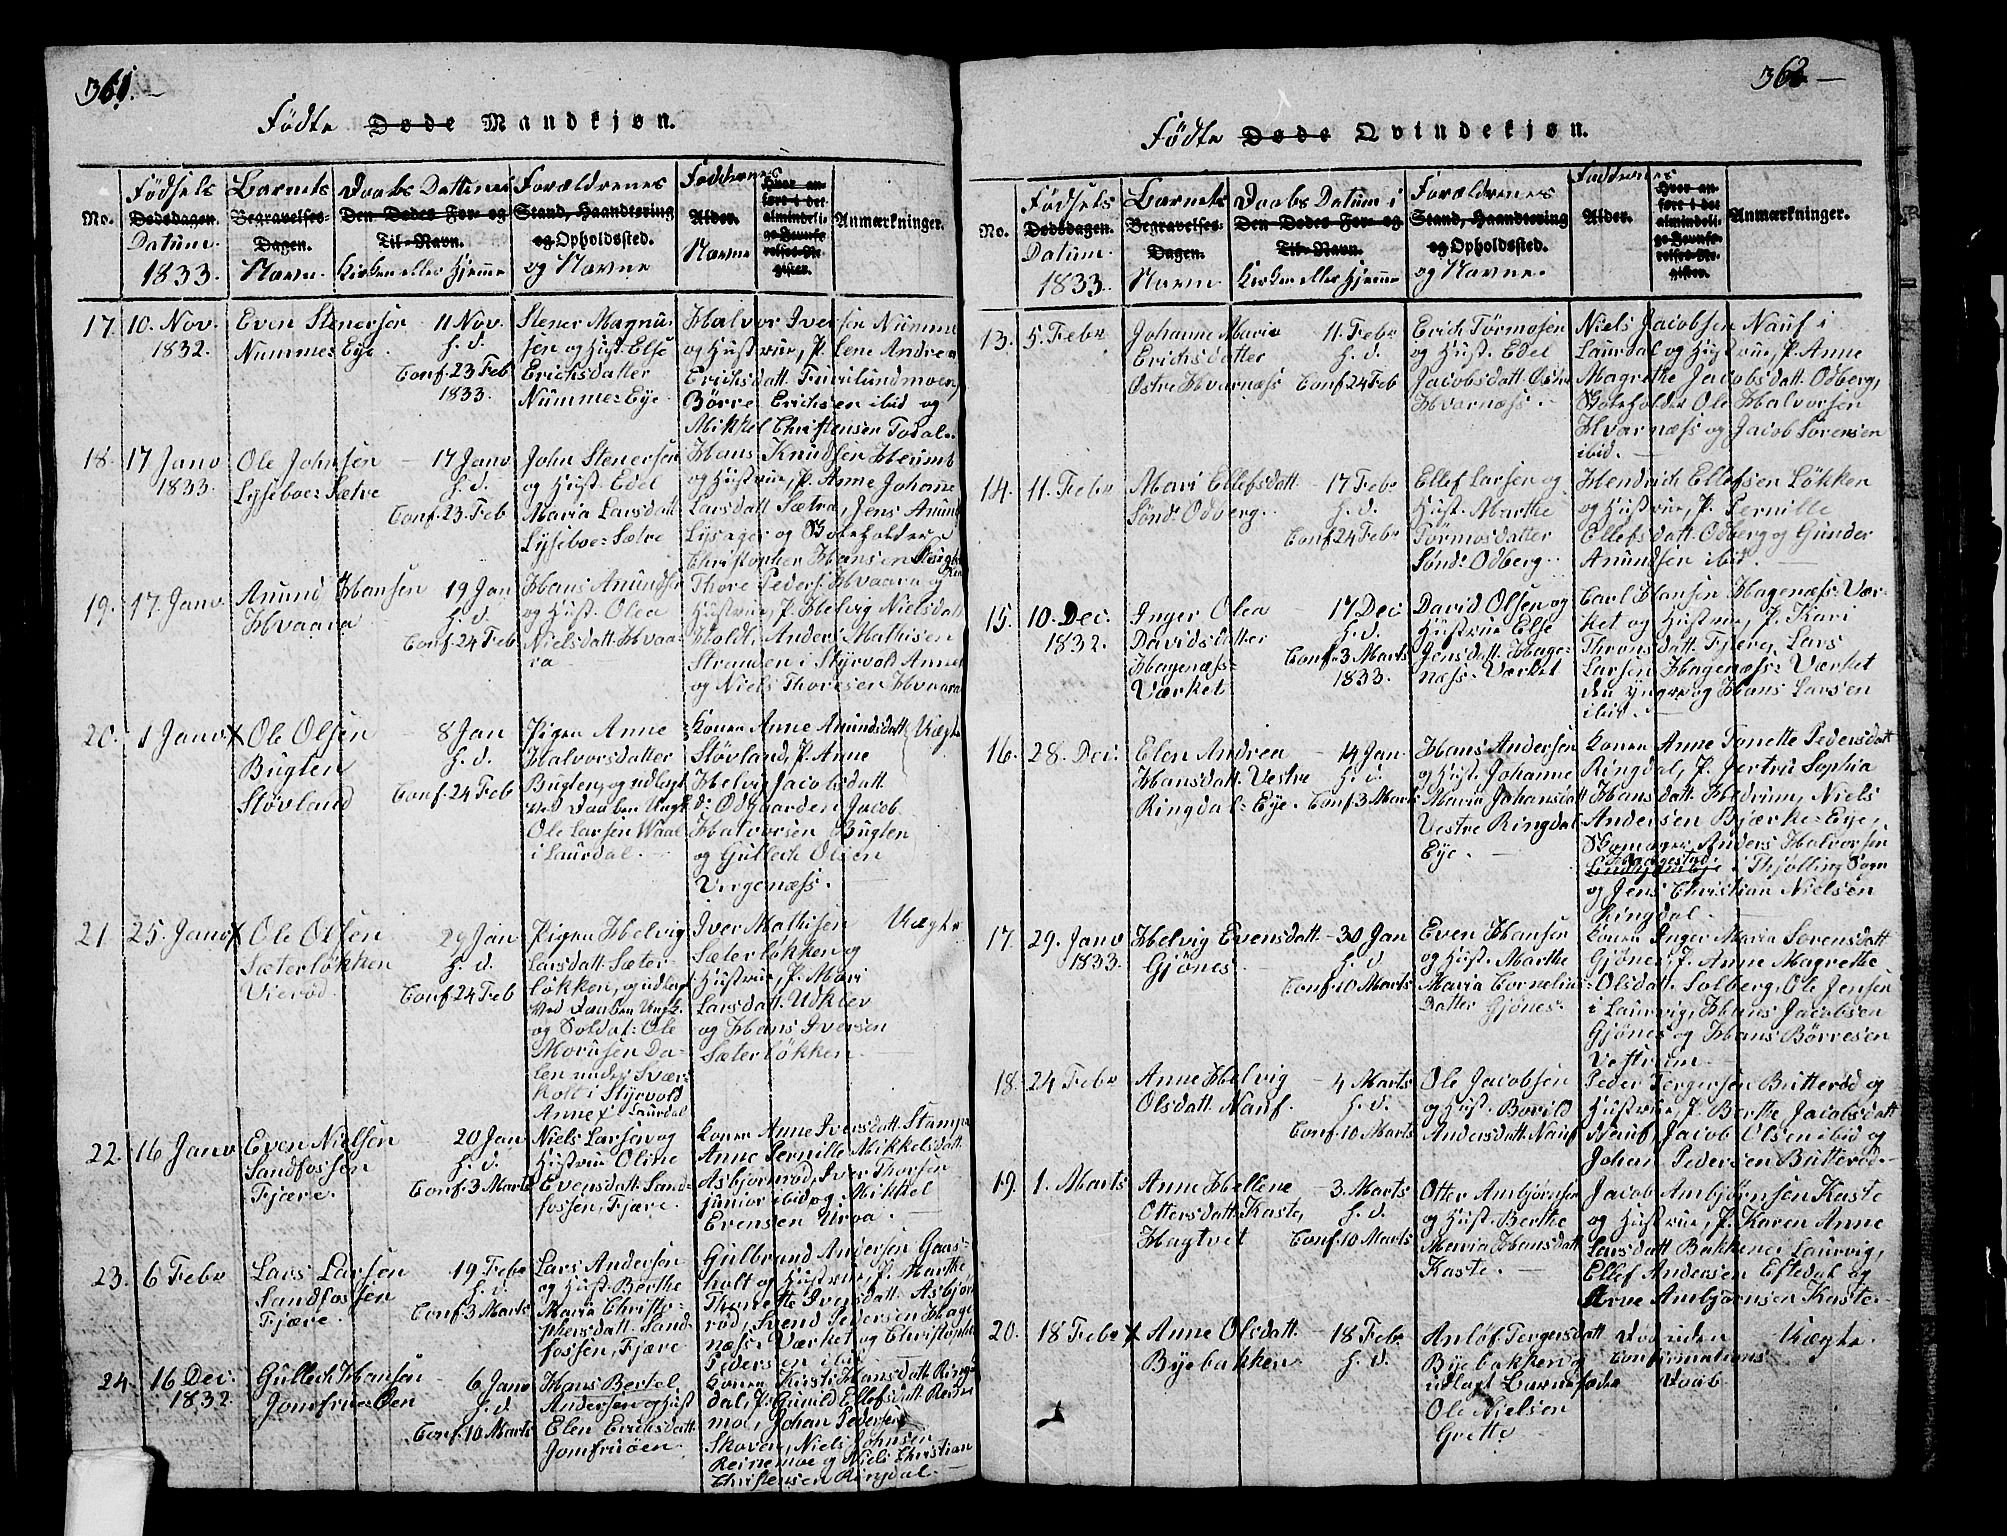 361.
Födte Døde Mandkjøn.
No.
Födsels Dødsdagen. Datum 1833.
Barnets Begravelses-Dagen. Navn
Daabs Datum i Den Dødes For- og Til-Navn. Kirken eller Hjemme
Forældrenes Stand, Haandtering og Opholdssted. og Navne
Faddernes Alder. Navne
Hvor anført i det almindelige Jevnførelses-Register.
Anmærkninger.
17. 10. Nov. 1832.
Even Stenersen
Nummes Eye.
11 Nov.
h. d.
Conf. 23 Feb
1833.
Stener Magnu-
sen og Hust. Else
Erichsdatter
Nummes Eye.
Halvor Iversen Numme
og Hustrue, P. Lene Andrea
Erichsdatt. Furulundmoen,
Börre Erichsen ibid og
Mikkel Christensen Todal.
18. 17 Janv 1833.
Ole Johnsen
Lyseboe-Sætre
17 Janv
h. d.
Conf. 23 Feb
John Stenersen
og Hust. Edel
Maria Larsdatt
Lyseboe-Sætre
Hans Knudsen Heum
og Hustrue, P. Anne Johane
Larsdatt. Sætra, Jens Anund
Lysager og Skoleholder
Christopher Hansen
19. 17. Janv.
Anund Hansen
Hvaara
19 Jan
h. d.
Conf. 24 Feb
Hans Anundsen
og Hust. Olea
Nielsdatt. Hvaa-
ra
Thore Peders. Hvaara og
Hustrue, P. Helvig Nielsdatt
Holdt, Anders Mathisen
Stranden i Styrvold Annex
og Niels Thoresen Hvaara
20. 1 Janv x
Ole Olsen
Bugten
Stövland
8 Jan
h. d.
Conf. 24 Feb
Pigen Anne
Halvorsdatter
Bugten, og udlagt
ved Daaben Ungk.
Ole Larsen Waal
i Laurdal.
Konen Anne Anundsdatt
Stövland, P. Anne
Helvig Jacobsdatt
d: Odgaarden, Jacob
Halvorsen Bugten
og Gullech Olsen
Vergenæss.
Uægte
21 25. Janv x
Ole Olsen
Sæterlökken
Vieröd.
29 Jan
h. d.
Conf. 24 Feb
Pigen Helvig
Larsdatt. Sæter-
lökken, og udlagt
ved Daaben Ungk.
og Soldat: Ole
Morusen Da-
len under Svær-
holt i Styrvold
Annex i Laurdal
Iver Mathisen
Sæterlökken og
Hustrue, P. Mari
Larsdatt. Udklev
og Hans Iversen
Sæterlökken.
Uægte
22. 16 Janv
Even Nielsen
Sandfossen
Fjære.
20 Jan
h. d.
Conf. 3 Marts
Niels Larsen og
Hustrue Oline
Evensdatt. Sand-
fossen, Fjære.
Konen Anne Iversdatt. Stamp
Anne Pernille Mikkelsdatt.
Asbjørnröd, Iver Thorsen
junior ibid og Mikkel
Evensen Urva.
23. 6 Febr
Lars Larsen
Sandfossen
Fjære.
19 Febr
h. d.
Conf. 3 Marts
Lars Andersen
og Hust. Berthe
Maria Christo-
phersdatt. Sand-
fossen, Fjære
Gulbrand Andersen Gaas-
holt og Hustrue, P. Marthe
Thonette Iversdatt. Asbjørn
röd, Svend Pedersen Hage
næss-Værket og Christopher
Pedersen ibid
24. 16 Dec. 1832.
Gullech Hansen
Jomfrue-Öen
6 Janv
h. d.
Conf. 10 Marts
Hans Bertel
Andersen og Hust
Elen Erichsdatt.
Jomfruöen.
Konen Kirsti Hansdatt. Ring
dal, P. Gunild Ellefsdatt. Reine
moe, Johan Pedersen
Skoven, Niels Johnsen
Reinemoe og Niels Christian
Christensen Ringdal.
362
Födte Døde Qvindekjøn.
No.
Födsels Dødsdagen. Datum 1833.
Barnets Begravelses-Dagen. Navn
Daabs Datum i Den Dødes For- og Til-Navn. Kirken eller Hjemme
Forældrenes Stand, Haandtering og Opholdssted. og Navne.
Faddernes Alder.
Hvor anført i det almindelige Jevnførelses-Register.
Anmærkninger.
13. 5. Febr
Johanne Maria
Erichsdatter
Östre Hvarnæss
11. Febr
h. d.
Conf 24 Feb
Erich Törmosen
og Hust. Edel
Jacobsdatt. Östre
Hvarnæss.
Niels Jacobsen Nauf i
Laurdal og Hustrue, P. Anne
Magrethe Jacobsdatt. Odberg,
Skoleholder Ole Halvorsen
Hvarnæss og Jacob Sörensen
ibid.
14. 11. Febr
Mari Ellefsdatt.
Sönd: Odberg.
17 Febr
h. d.
Conf 24 Febr
Ellef Larsen og
Hust. Marthe
Törmosdatter
Sönd: Odberg.
Hendrich Ellefsen Lökken
og Hustrue, P. Pernille
Ellefsdatt. Odberg og Gunder
Anundsen ibid.
15. 10. Dec. 1832.
Inger Olea
Davidsdatter
Hagenæss-
Værket
17 Dec
h. d.
Conf. 3 Marts
1833.
David Olsen og
Hustrue Else
Jensdatt. Hage-
næss-Værket
Carl Hansen Hagenæss-Vær-
ket og Hustrue, P. Kari
Thronsdatt. Fjerey, Lars
Larsen Hagenæss-Værket
den yngre og Hans Larsen
ibid.
16. 28. Dec.
Elen Andrea
Hansdatt. Vestre
Ringdal-Eye.
14 Jan
h. d.
Conf 3 Marts
Hans Andersen
og Hust. Johanne
Maria Johansdatt
Vestre Ringdal
Eye.
Konen Anne Tonette Pedersdatt
Ringdal, P. Jertru Sophia
Hansdatt. Hedrum, Niels
Andersen Bjærke-Eye,
Skomager Anders Halvorsen
i Thjölling Sogn
og Jens Christian Nielsen
Ringdal.
17. 29. Janv 1833.
Helvig Evensdatt.
Gjönes.
30 Jan
h. d.
Conf 10 Marts
Even Hansen
og Hust. Marthe
Maria Cornelius-
datter Gjönes.
Konen Inger Maria Sörensdatt
Gjönes, P. Anne Magrethe
Olsdatt. Solberg, Ole Jensen
i Laurvig, Hans Jacobsen
Gjönes og Hans Börresen
Vestrum.
18. 24 Febr
Anne Helvig
Olsdatt. Nauf.
4 Marts
h. d.
Conf 10 Marts
Ole Jacobsen
og Hust. Borild
Andersdatt. Nauf
Peder Torgersen Butteröd og
Hustrue, P. Berthe Jacobsdatt
Nauf, Jacob Olsen ibid og
Johan Pedersen Butteröd.
19. 1. Marts
Anne Hellene
Ottersdatt. Kaste,
Hagtvet
3. Marts
h. d.
Conf. 10 Marts
Otter Ambjörnsen
og Hust. Berthe
Maria Hansdatt
Kaste.
Jacob Ambjörnsen Kaste
og Hustrue, P. Karen Anne
Larsdatt. Bakkene i Laurvig,
Ellef Andersen Eftedal og
Arve Ambjörnsen Kaste.
20. 18 Febr x
Anne Olsdatt.
Byebakken
18 Febr
h. d.
Anlöf Torgersdatt
Byebakken og
udlagt Barnefader
Ole Nielsen
Grette
Död uden
Confirmations
Daab
Uægte